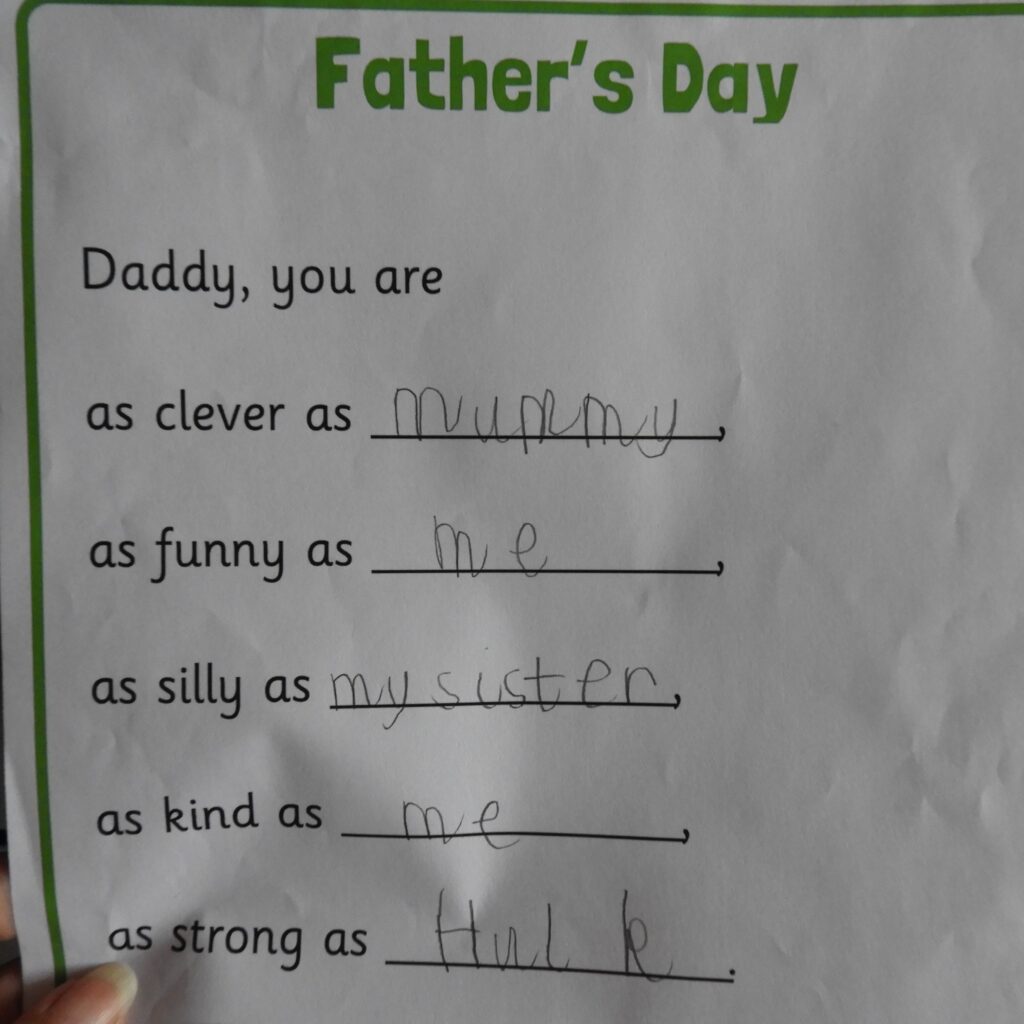 Father's Day
Daddy, you are
as clever as mummy,
as funny as me,
as silly as my sister,
as kind as me,
as strong as Hulk.